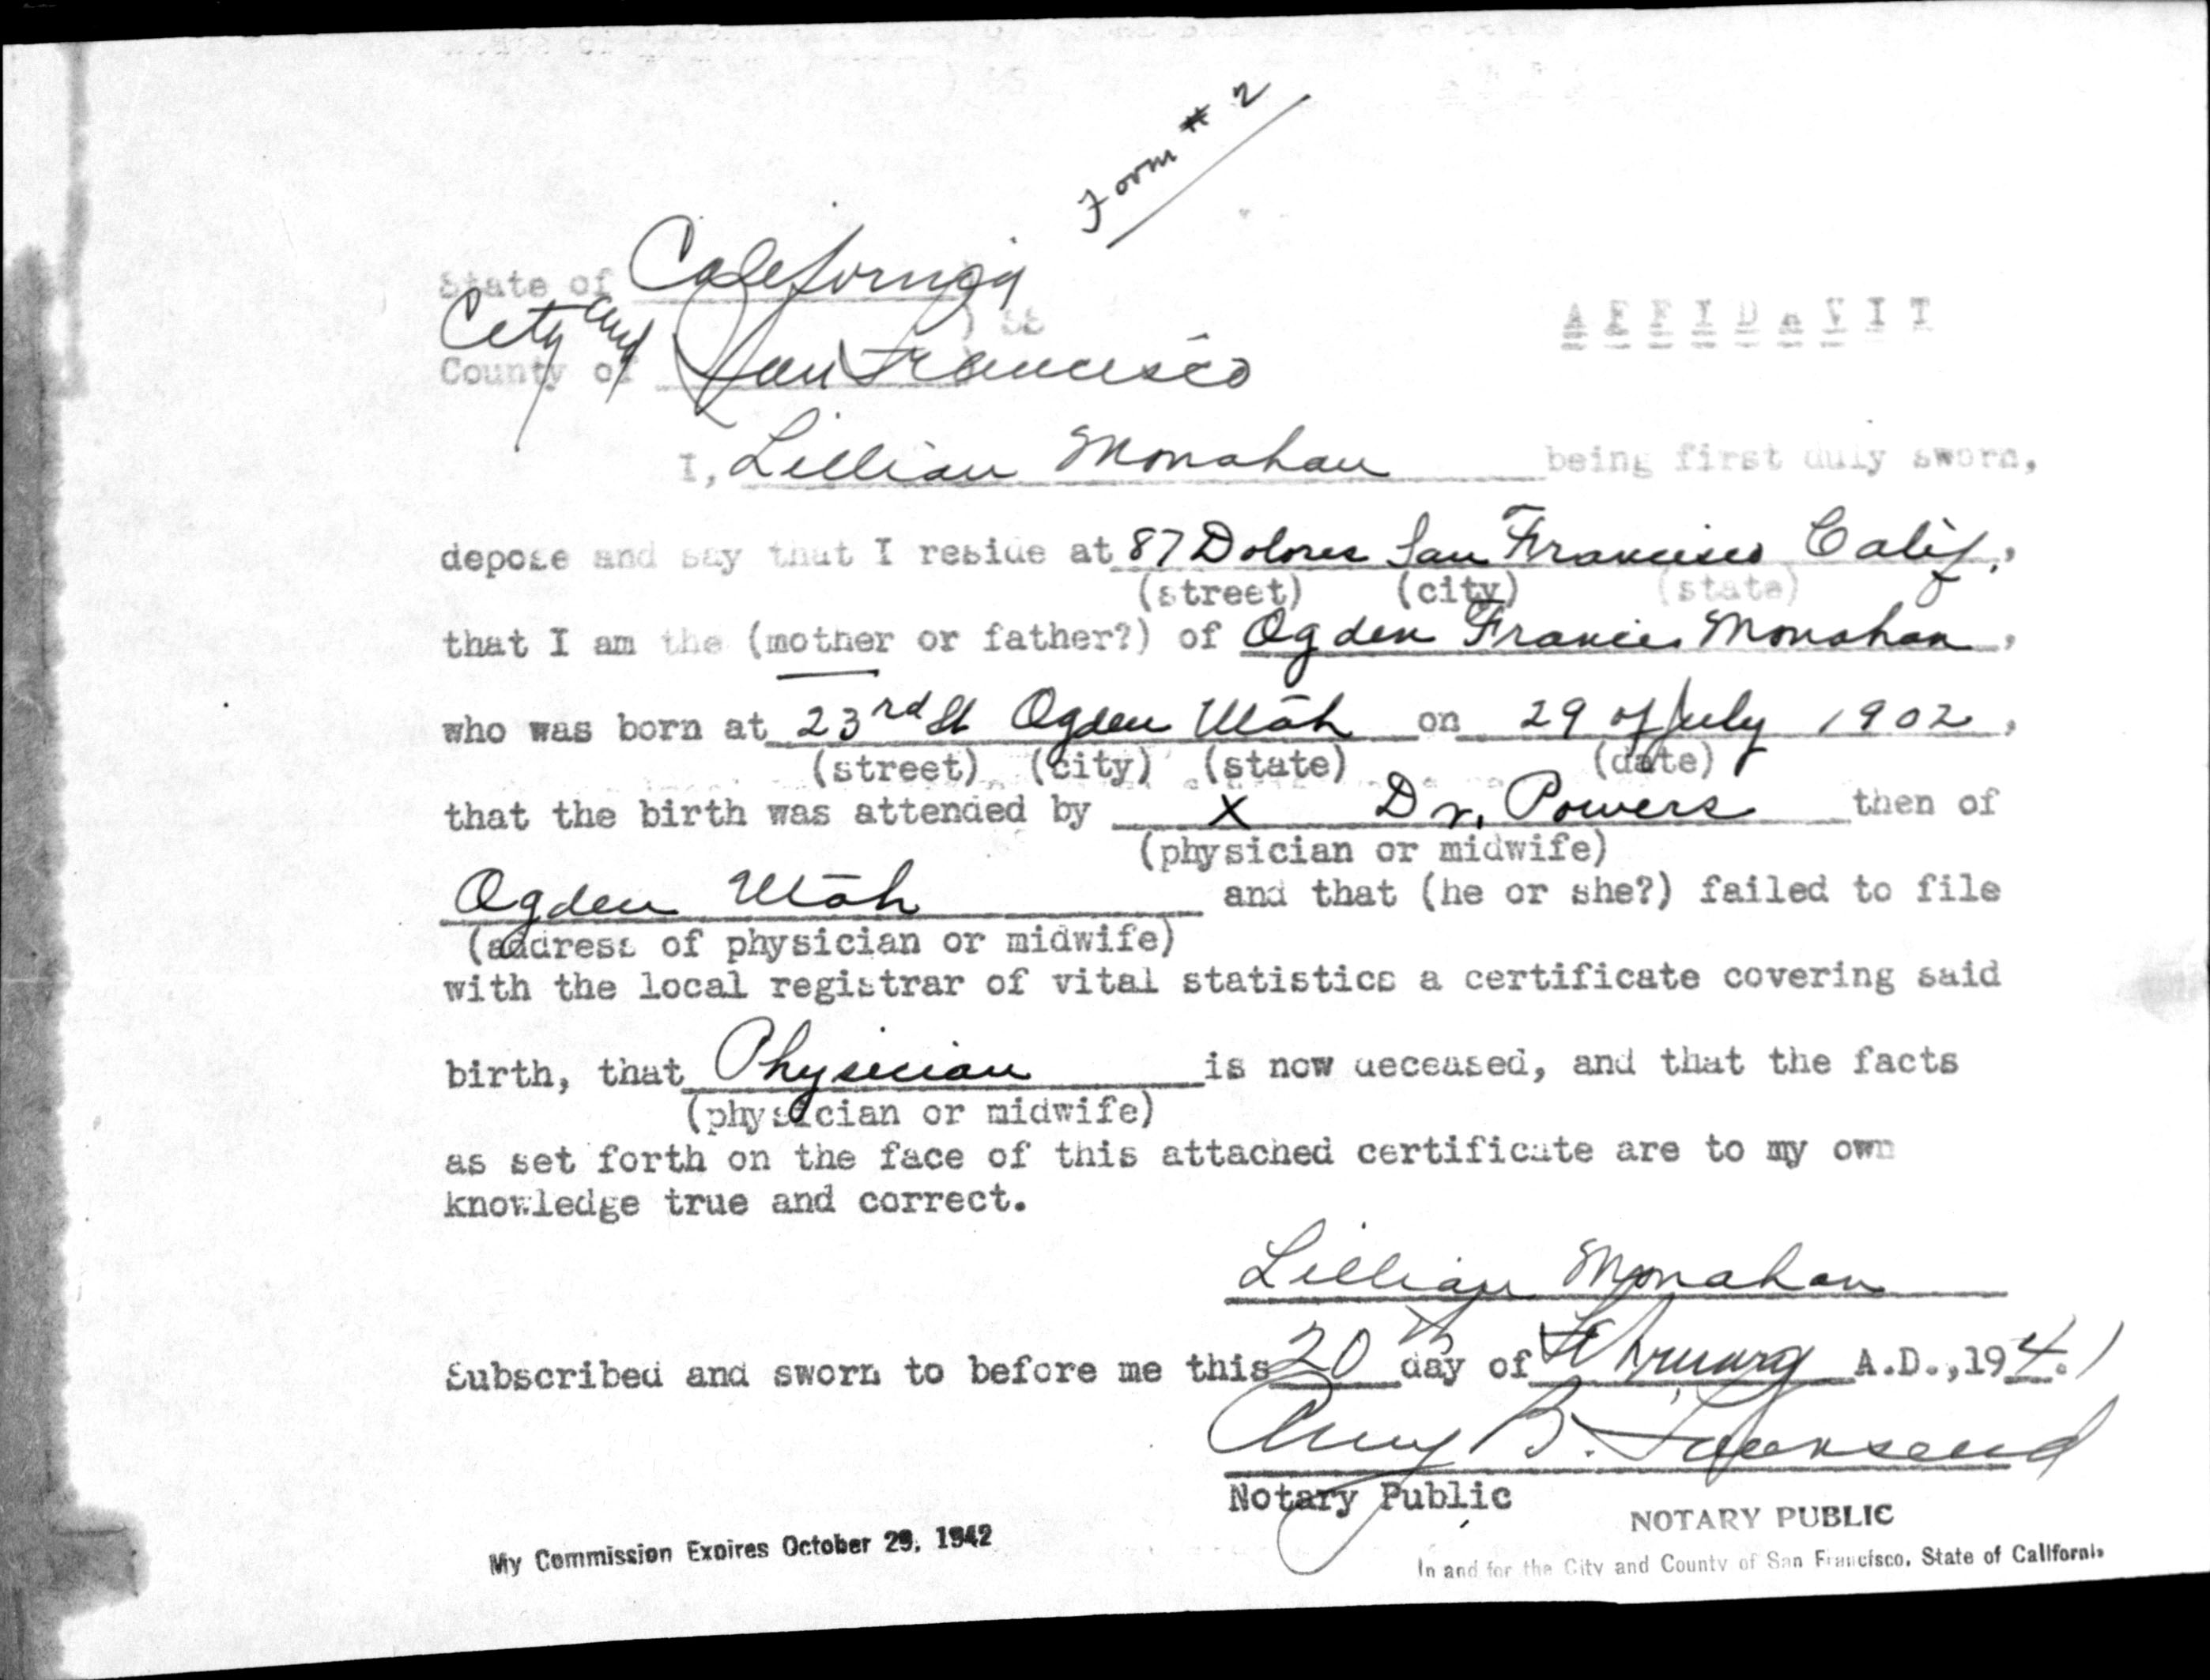 Form # 2
State of California
) SS
City and
County of San Francisco
AFFIDAVIT
I, Lillian Monahan being first duly sworn,
depose and say that I reside at 87 Dolores San Francisco Calif.,
(street) (city) (state)
that I am the (mother or father?) of Ogden Francis Monahan,
who was born at 23rd St Ogden Utah on 29 of July 1902,
(street) (city) (state) (date)
that the birth was attended by X Dr. Powers then of
(physician or midwife)
Ogden Utah and that (he or she?) failed to file
(address of physician or midwife)
with the local registrar of vital statistics a certificate covering said
birth, that Physician is now deceased, and that the facts
(physician or midwife)
as set forth on the face of this attached certificate are to my own
knowledge true and correct.
Lillian Monahan
Subscribed and sworn to before me this 20th day of February A.D., 194.1
Amy B. Townsend
Notary Public
NOTARY PUBLIC
My Commission Expires October 29, 1942
In and for the City and County of San Francisco, State of California